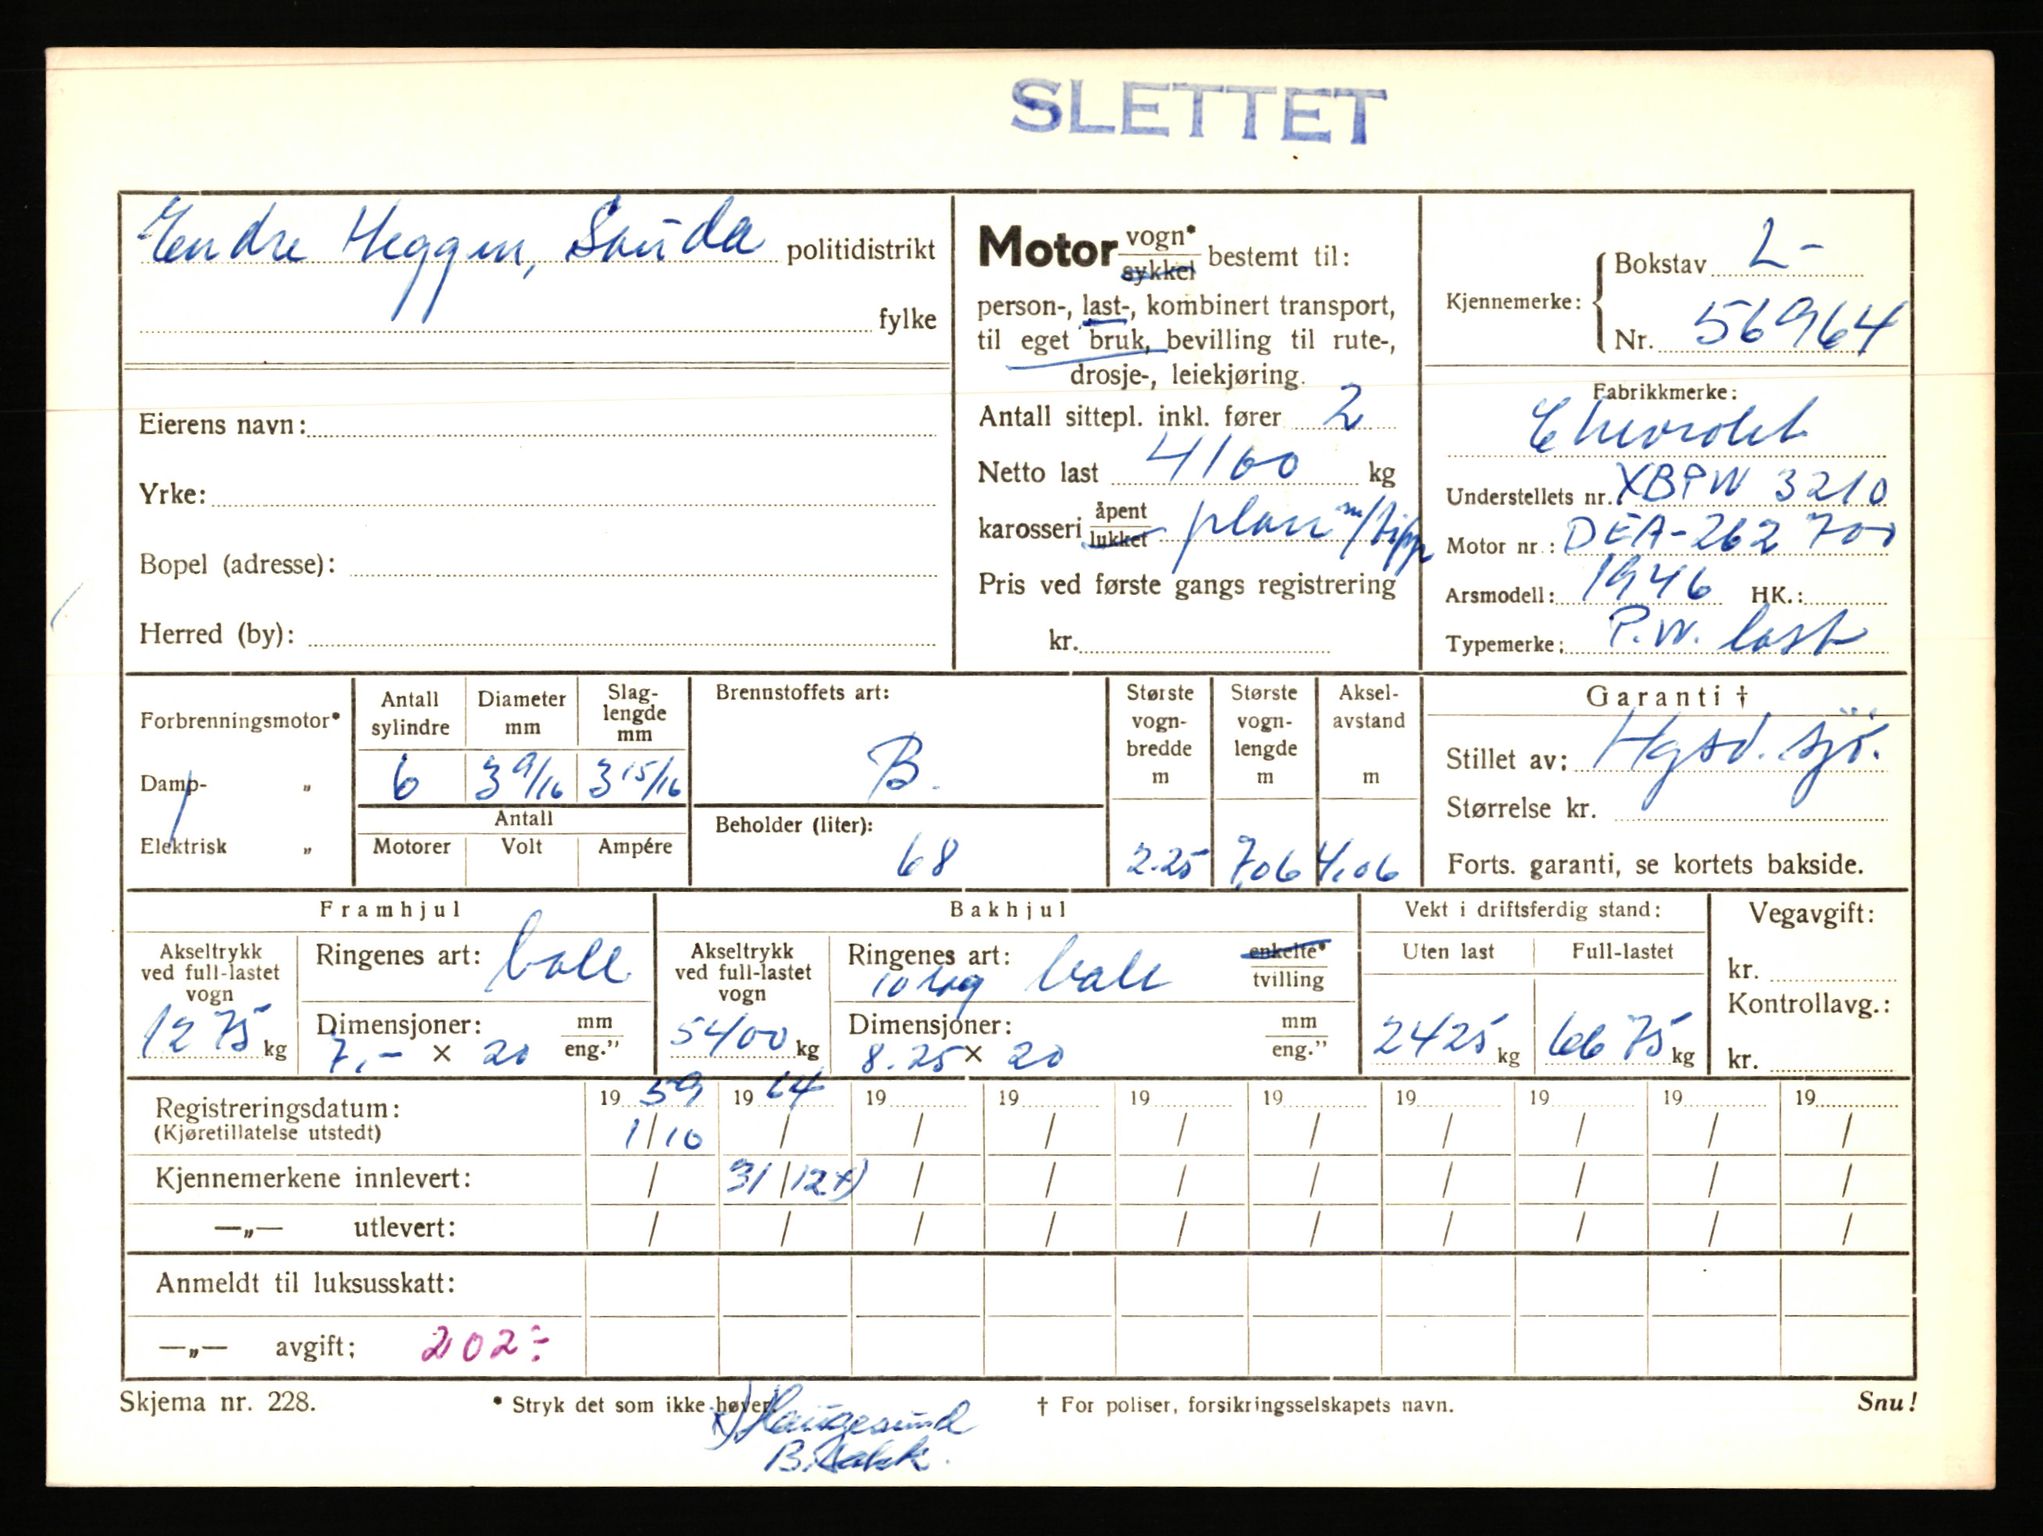 SLETTET
Endre Heggen, Sauda politidistrikt
fylke
Eierens navn:
Yrke:
Bopel (adresse):
Herred (by):
Motor vogn* sykkel bestemt til:
person-, last-, kombinert transport,
til eget bruk, bevilling til rute-,
drosje-, leiekjøring.
Antall sittepl. inkl. fører 2
Netto last 4100 kg
karosseri åpent lukket plan m/tipp
Pris ved første gangs registrering
kr.
Kjennemerke: Bokstav L-
Nr. 56964
Fabrikkmerke:
Chevrolet
Understellets nr. XBPW 3210
Motor nr.: DEA-262700
Arsmodell: 1946 HK.:
Typemerke: P.W. last
Forbrenningsmotor*
Damp- „
Elektrisk „
Antall sylindre 6
Diameter mm 3 9/16
Slag-lengde mm 3 15/16
Antall
Motorer Volt Ampére
Brennstoffets art:
B.
Beholder (liter):
68
Største vogn-bredde m 2.25
Største vogn-lengde m 7,06
Aksel-avstand m 4,06
Garanti †
Stillet av: Hgsd. sjø.
Størrelse kr.
Forts. garanti, se kortets bakside.
Framhjul
Akseltrykk ved full-lastet vogn 1275 kg
Ringenes art: ball
Dimensjoner: mm eng."
7,- × 20
Bakhjul
Akseltrykk ved full-lastet vogn 5400 kg
Ringenes art: enkelte* tvilling
10 lag ball
Dimensjoner: mm eng."
8.25 × 20
Vekt i driftsferdig stand:
Uten last Full-lastet
2425 kg 6675 kg
Vegavgift:
kr.
Kontrollavg.:
kr.
Registreringsdatum: 19 59 19 64 19 19 19 19 19 19 19 19
(Kjøretillatelse utstedt) 1/10 / / / / / / / / /
Kjennemerkene innlevert: / 31/12 x) / / / / / / / /
—„— utlevert: / / / / / / / / / /
Anmeldt til luksusskatt:
—„— avgift: 202÷
Skjema nr. 228. * Stryk det som ikke høver. † For poliser, forsikringsselskapets navn. Snu!
x) Haugesund
B.